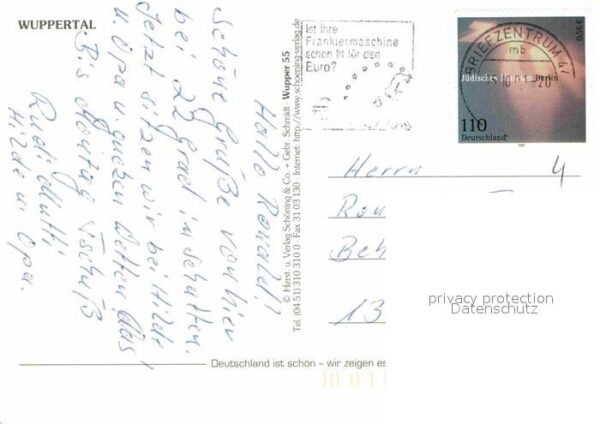 WUPPERTAL
Hallo Ronald!
Schöne Grüße von hier
bei 22 Grad im Schatten.
Jetzt sitzen wir bei Hilde
u. Opa u.
Bis Montag Tschüß
Rudi Mutti
Hilde u. Opa.
© Herst. u. Verlag Schöning & Co. + Gebr. Schmidt · Wupper 55
Tel. (04 51) 310 310 0 · Fax 31 03 130 · Internet: http://www.schoening-verlag.de
Ist Ihre
Frankiermaschine
schon fit für den
Euro?
BRIEFZENTRUM 47
mb
0,56 €
Jüdisches Museum Berlin
110
Deutschland
Herrn
4
Ron
Beh
13
privacy protection
Datenschutz
Deutschland ist schön – wir zeigen es